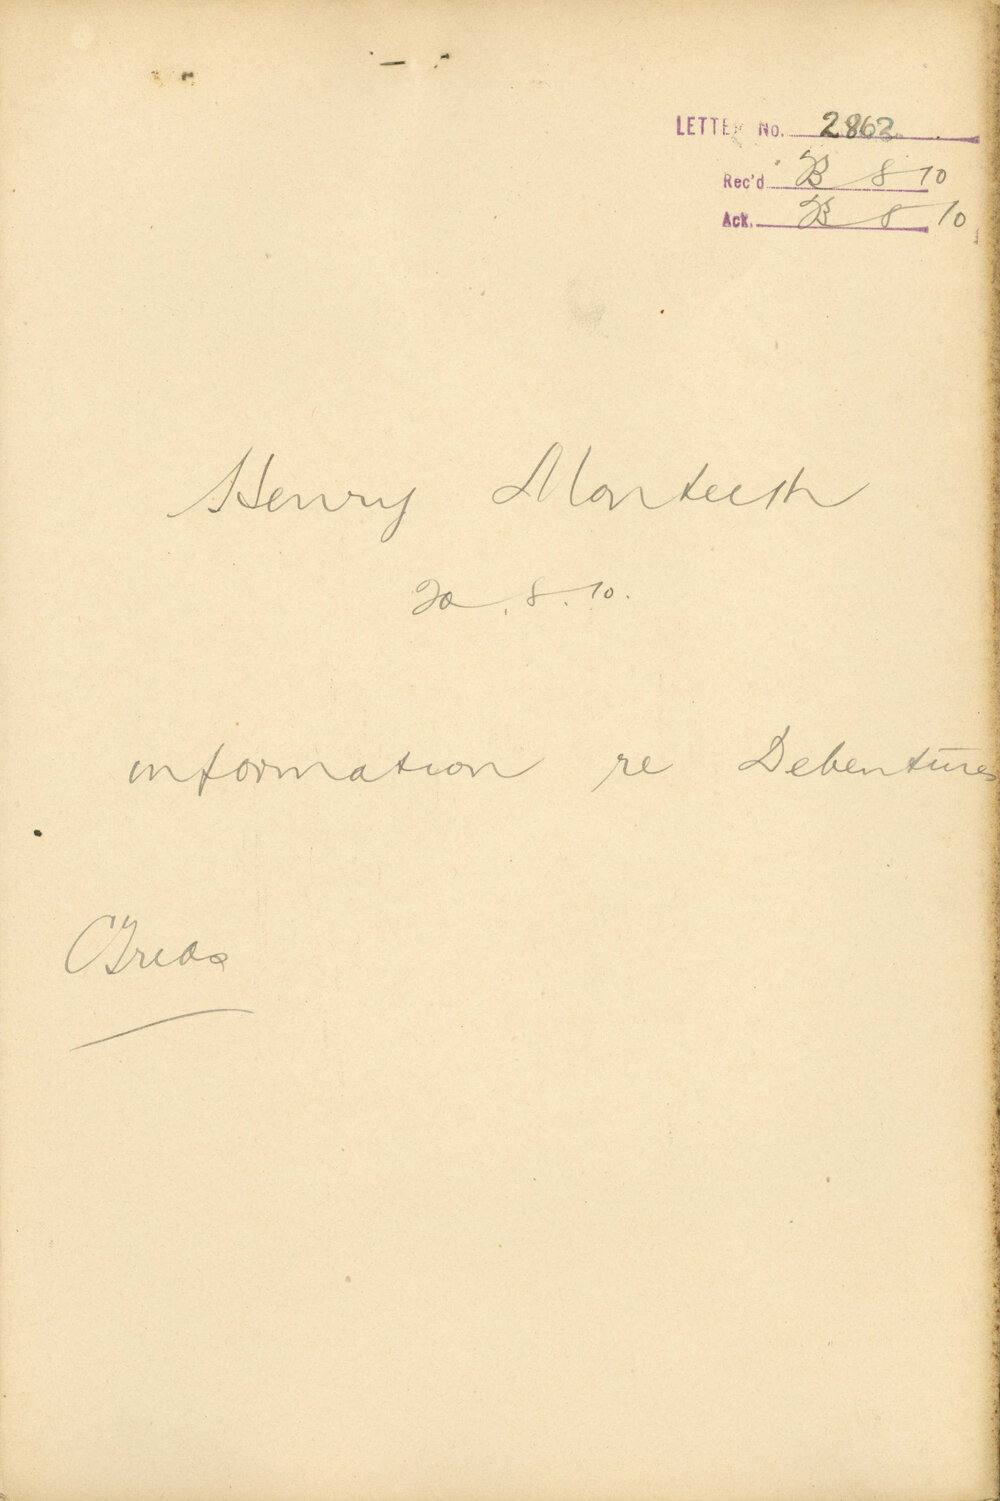 LETTER No. 2862
Rec'd 23 8 10
Ack. 23 8 10
Henry Monteith
20.8.10.
information re Debentures
Treas